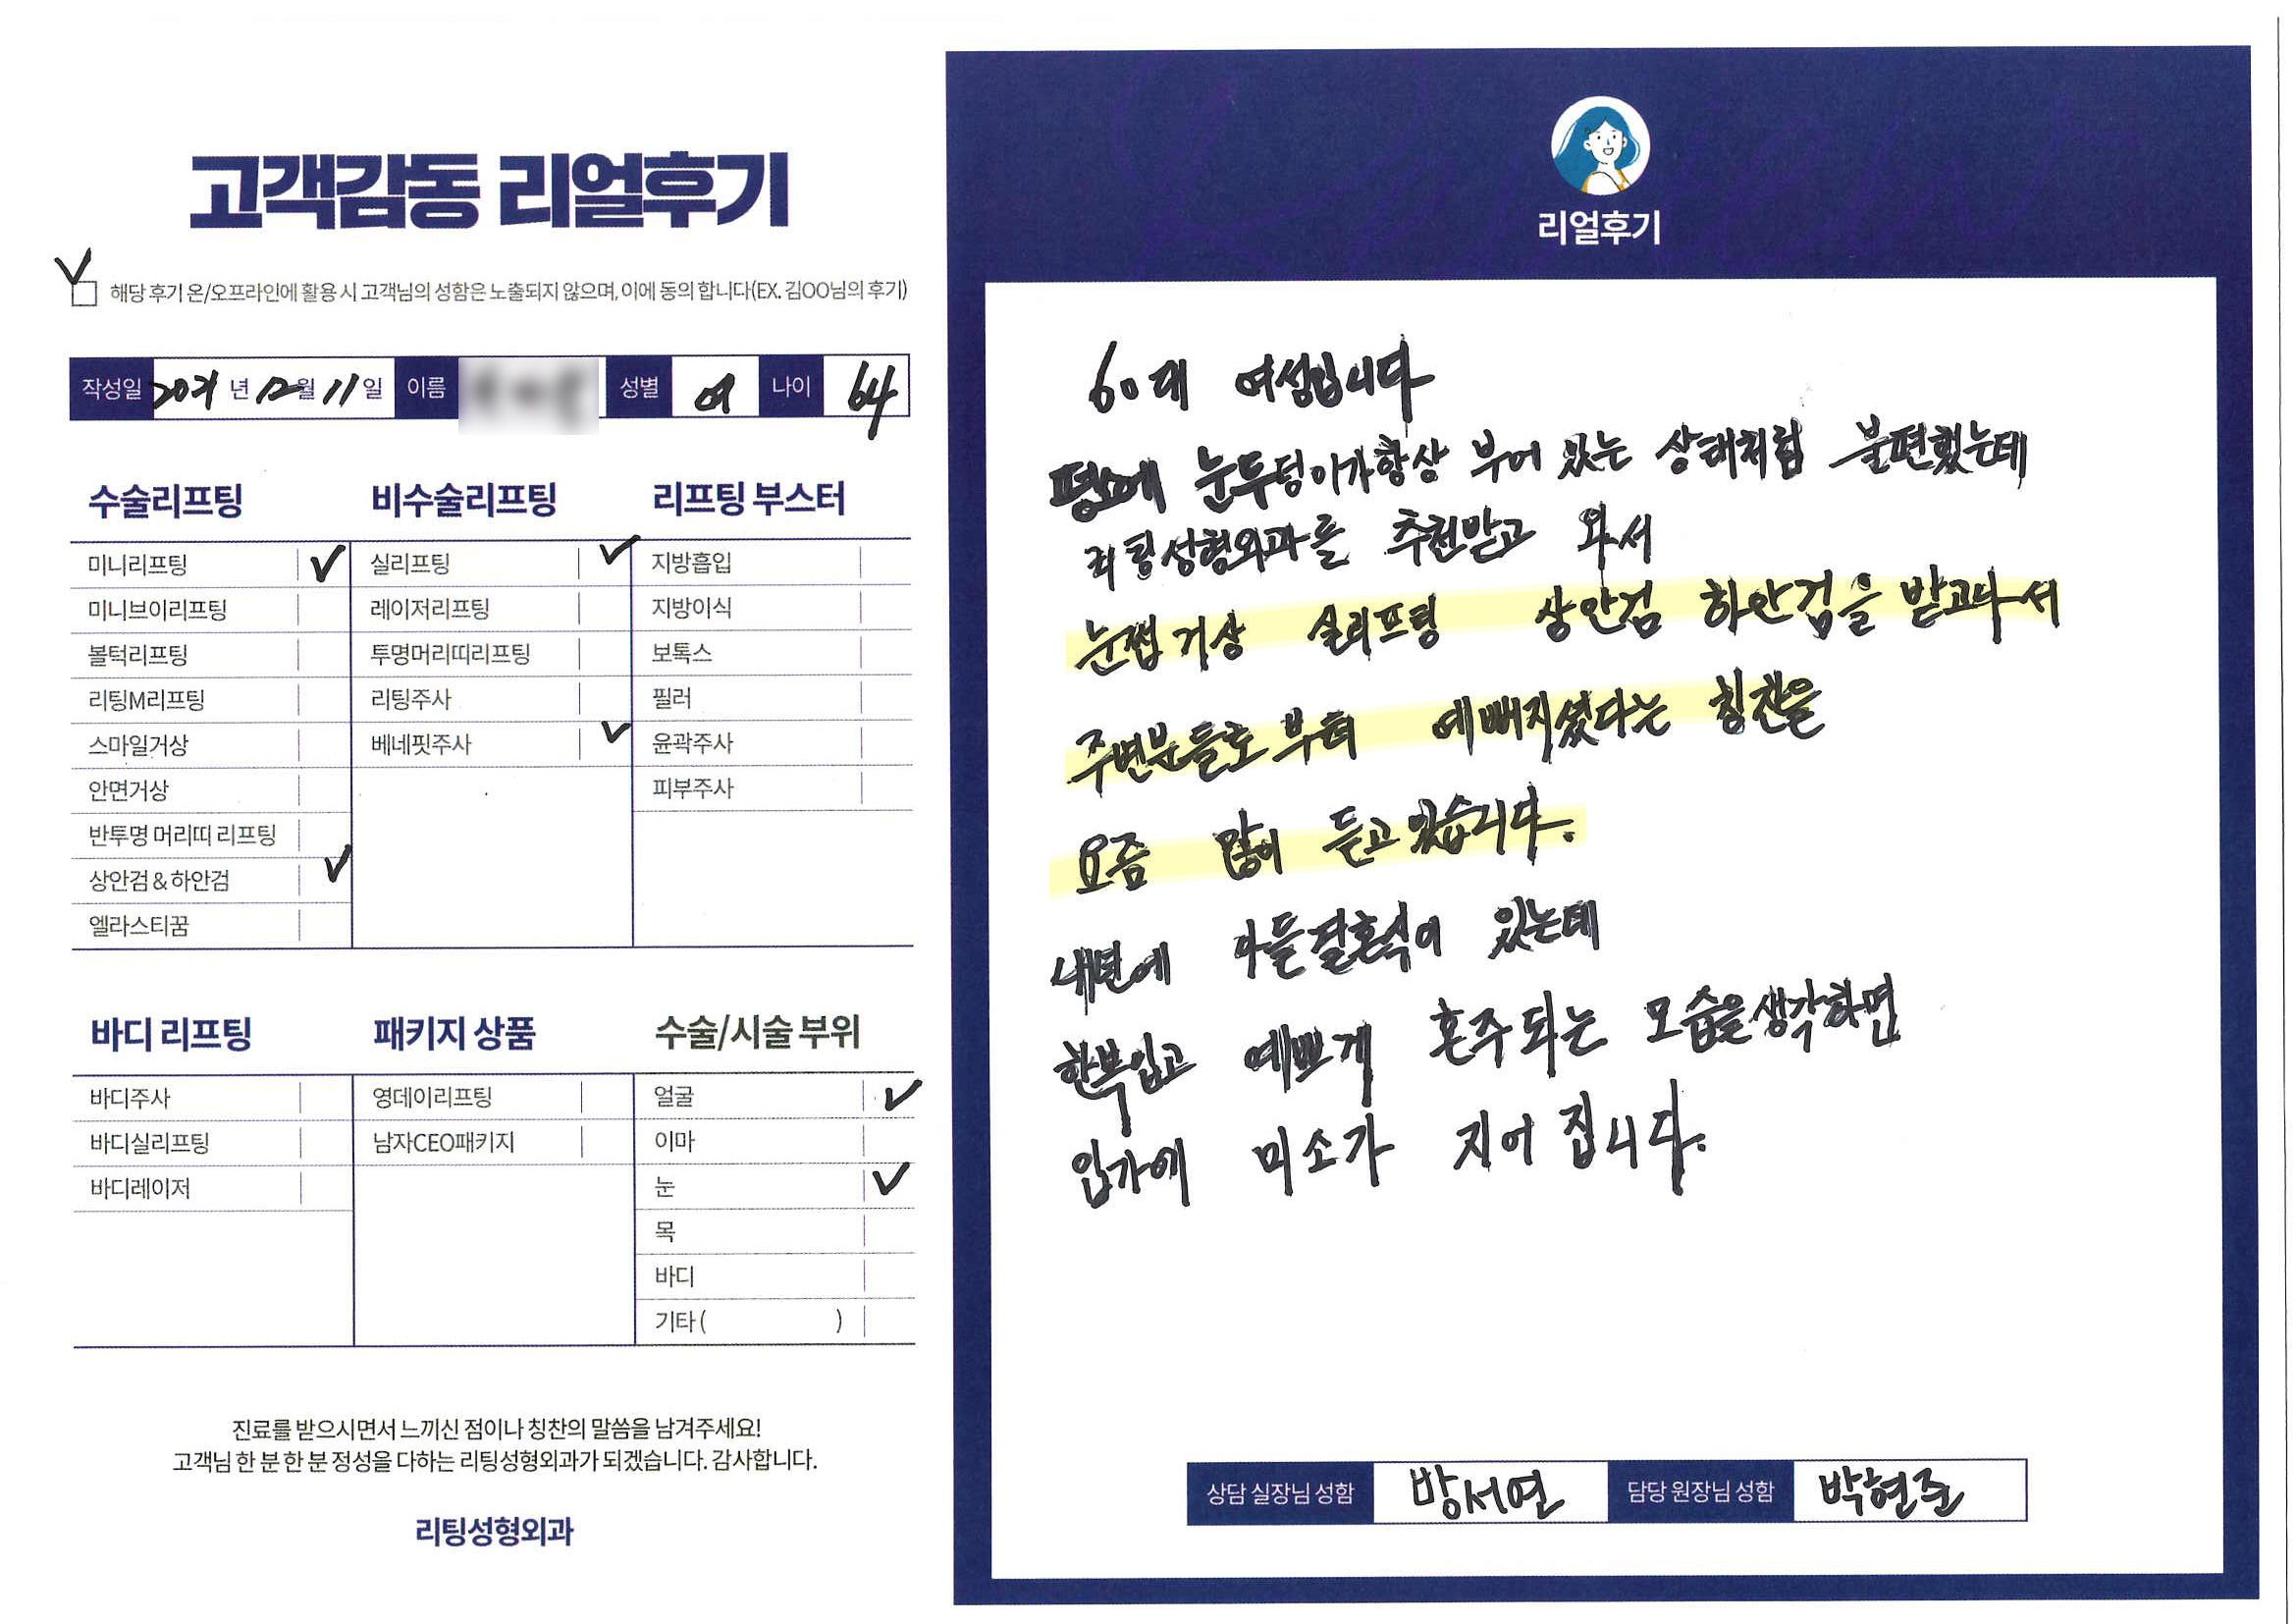 고객감동 리얼후기
해당 후기 온/오프라인에 활용 시 고객님의 성함은 노출되지 않으며, 이에 동의 합니다(EX. 김OO님의 후기)
작성일 2021 년 12월 11일 이름 성별 여 나이 64
수술리프팅
미니리프팅 ✓
미니브이리프팅
볼턱리프팅
리팅M리프팅
스마일거상
안면거상
반투명 머리띠 리프팅
상안검 & 하안검 ✓
엘라스티꿈
비수술리프팅
실리프팅 ✓
레이저리프팅
투명머리띠리프팅
리팅주사
베네핏주사 ✓
리프팅 부스터
지방흡입
지방이식
보톡스
필러
윤곽주사
피부주사
바디 리프팅
바디주사
바디실리프팅
바디레이저
패키지 상품
영데이리프팅
남자CEO패키지
수술/시술 부위
얼굴 ✓
이마
눈 ✓
목
바디
기타 ( )
진료를 받으시면서 느끼신 점이나 칭찬의 말씀을 남겨주세요!
고객님 한 분 한 분 정성을 다하는 리팅성형외과가 되겠습니다. 감사합니다.
리팅성형외과
리얼후기
60대 여성입니다
평소에 눈두덩이가항상 부어 있는 상태처럼 불편했는데
리팅성형외과를 추천받고 와서
눈썹 거상 실리프팅 상안검 하안검을 받고나서
주변분들로 부터 예뻐지셨다는 칭찬을
요즘 많이 듣고 있습니다.
내년에 아들결혼식이 있는데
한복입고 예쁘게 혼주되는 모습을생각하면
입가에 미소가 지어 집니다.
상담 실장님 성함 방서연 담당 원장님 성함 박현준